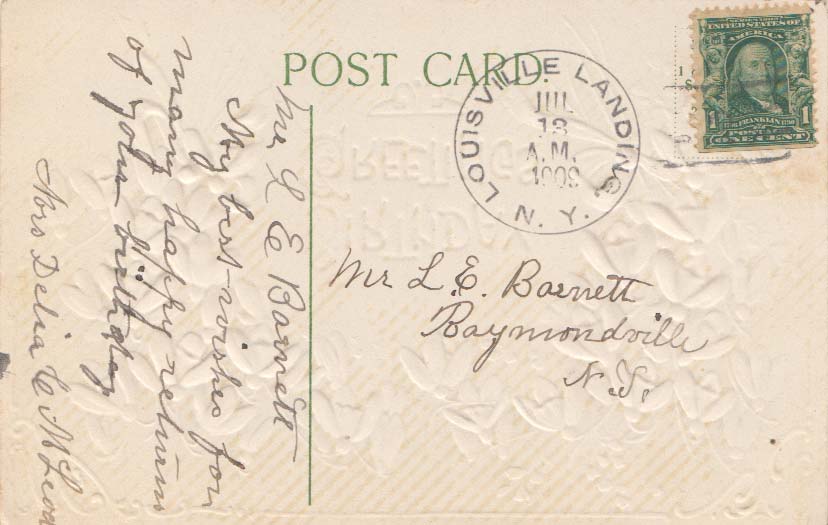 POST CARD.
LOUISVILLE LANDING,
N. Y.
JUL
13
A.M.
1908
UNITED STATES OF
AMERICA
FRANKLIN
1 POSTAGE 1
ONE CENT
Mr L E Barnett
My best wishes for
many happy returns
of your birthday
Mrs Delia C McLeod
Mr L.E. Barnett
Raymondville
N.Y.
BIRTHDAY
GREETINGS